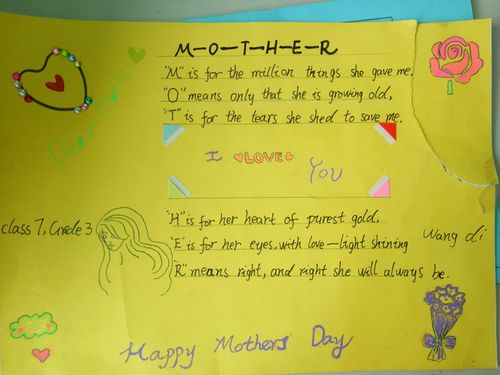 M-O-T-H-E-R
Dear Mother
"M" is for the million things she gave me,
"O" means only that she is growing old,
"T" is for the tears she shed to save me.
I LOVE YOU
"H" is for her heart of purest gold,
"E" is for her eyes, with love-light shining
"R" means right, and right she will always be.
class 7, Grade 3
Wang di
Happy Mothers' Day